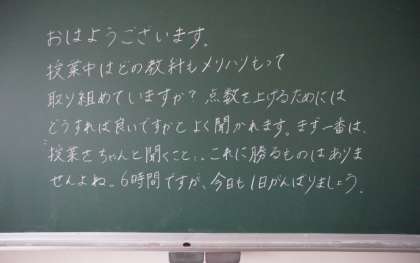 おはようございます。
授業中はどの教科もメリハリもって
取り組めていますか？点数を上げるためには
どうすれば良いですかとよく聞かれます。まず一番は、
授業をちゃんと聞くこと…。これに勝るものはありま
せんよね。6時間ですが、今日も1日がんばりましょう。